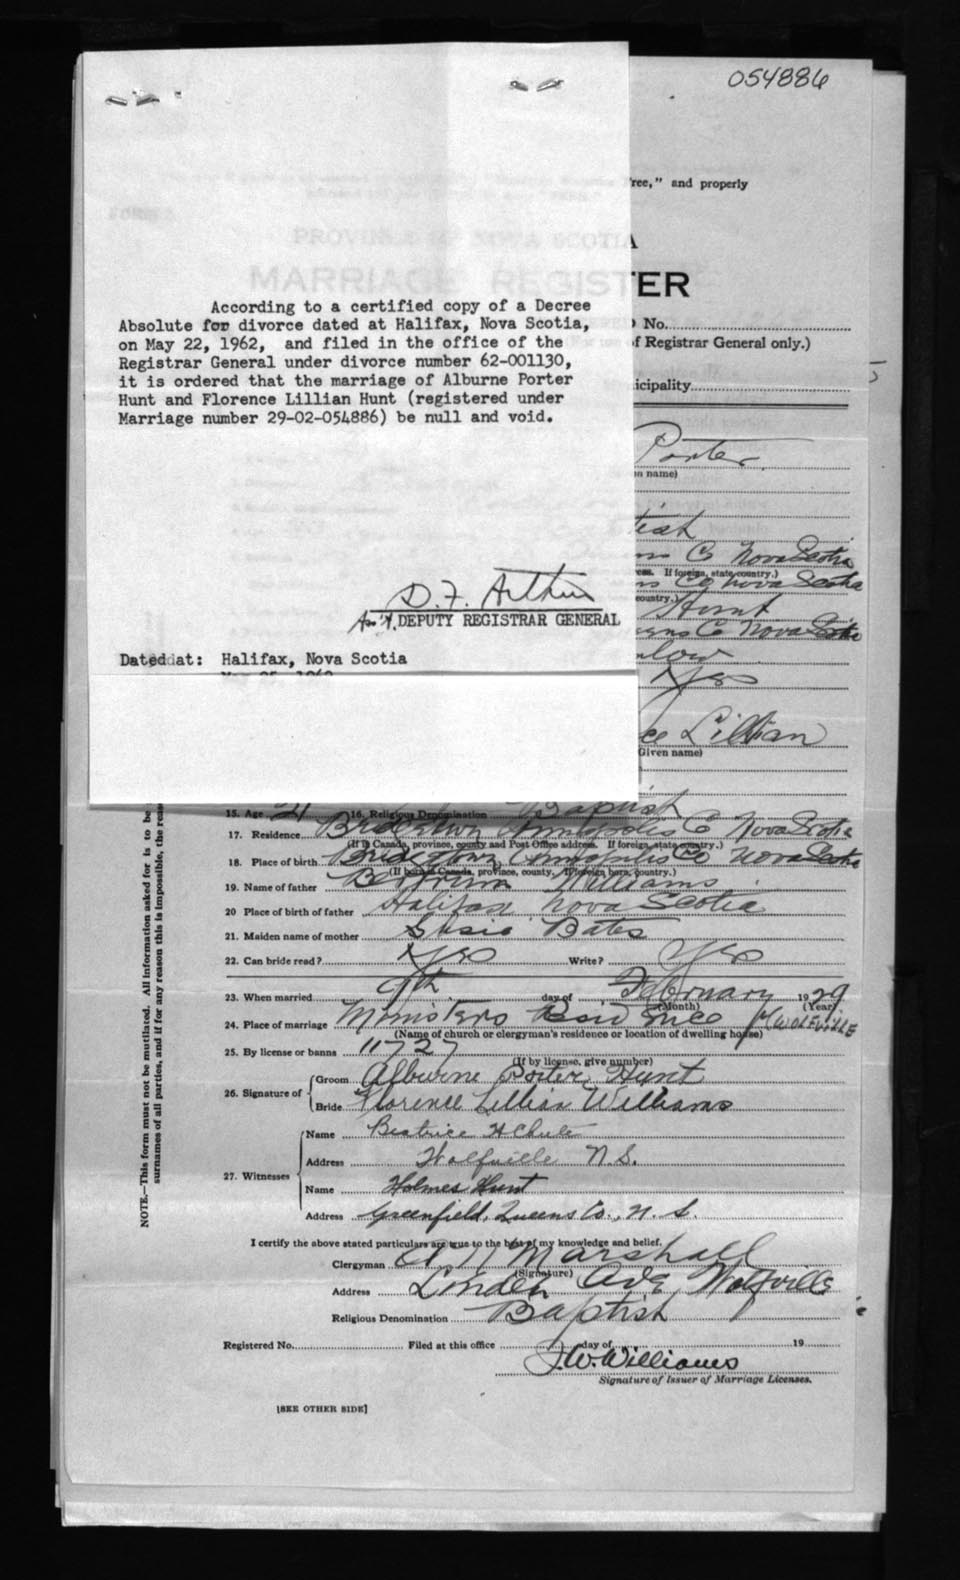 054886
ree," and properly
PROVINCE OF NOVA SCOTIA
MARRIAGE REGISTER
No.
of Registrar General only.)
icipality
According to a certified copy of a Decree
Absolute for divorce dated at Halifax, Nova Scotia,
on May 22, 1962, and filed in the office of the
Registrar General under divorce number 62-001130,
it is ordered that the marriage of Alburne Porter
Hunt and Florence Lillian Hunt (registered under
Marriage number 29-02-054886) be null and void.
Porter
n name)
tish
Co Nova Scotia
ess. If foreign, state country.)
ns Co Nova Scotia
country.)
Hunt
eens Co Nova Scotia
Yes
D. F. Arthur
DEPUTY REGISTRAR GENERAL
Dated at: Halifax, Nova Scotia
ce Lillian
Given name)
15. Age 21 16. Religious Denomination Baptist
17. Residence Bridgetown Annapolis Co Nova Scotia
(If in Canada, province, county and Post Office address. If foreign, state country.)
18. Place of birth Bridgetown Annapolis Co Nova Scotia
(If born in Canada, province, county. If foreign born, country.)
19. Name of father Bertrum Williams
20 Place of birth of father Halifax Nova Scotia
21. Maiden name of mother Susie Bates
22. Can bride read? Yes Write? Yes
23. When married 9th day of February 1929
(Month) (Year)
24. Place of marriage Ministers Residence WOLFVILLE
(Name of church or clergyman's residence or location of dwelling house)
25. By license or banns 11727
(If by license, give number)
26. Signature of Groom Alburne Porter Hunt
Bride Florence Lillian Williams
27. Witnesses Name Beatrice H Chute
Address Wolfville N.S.
Name Holmes Hunt
Address Greenfield, Queens Co., N. S.
I certify the above stated particulars are true to the best of my knowledge and belief.
Clergyman Marshall
(Signature)
Address Linden Ave Wolfville
Religious Denomination Baptist
Registered No. Filed at this office day of 19
F.W. Williams
Signature of Issuer of Marriage Licenses.
[SEE OTHER SIDE]
NOTE.—This form must not be mutilated. All information asked for is to be
surnames of all parties, and if for any reason this is impossible, the rea